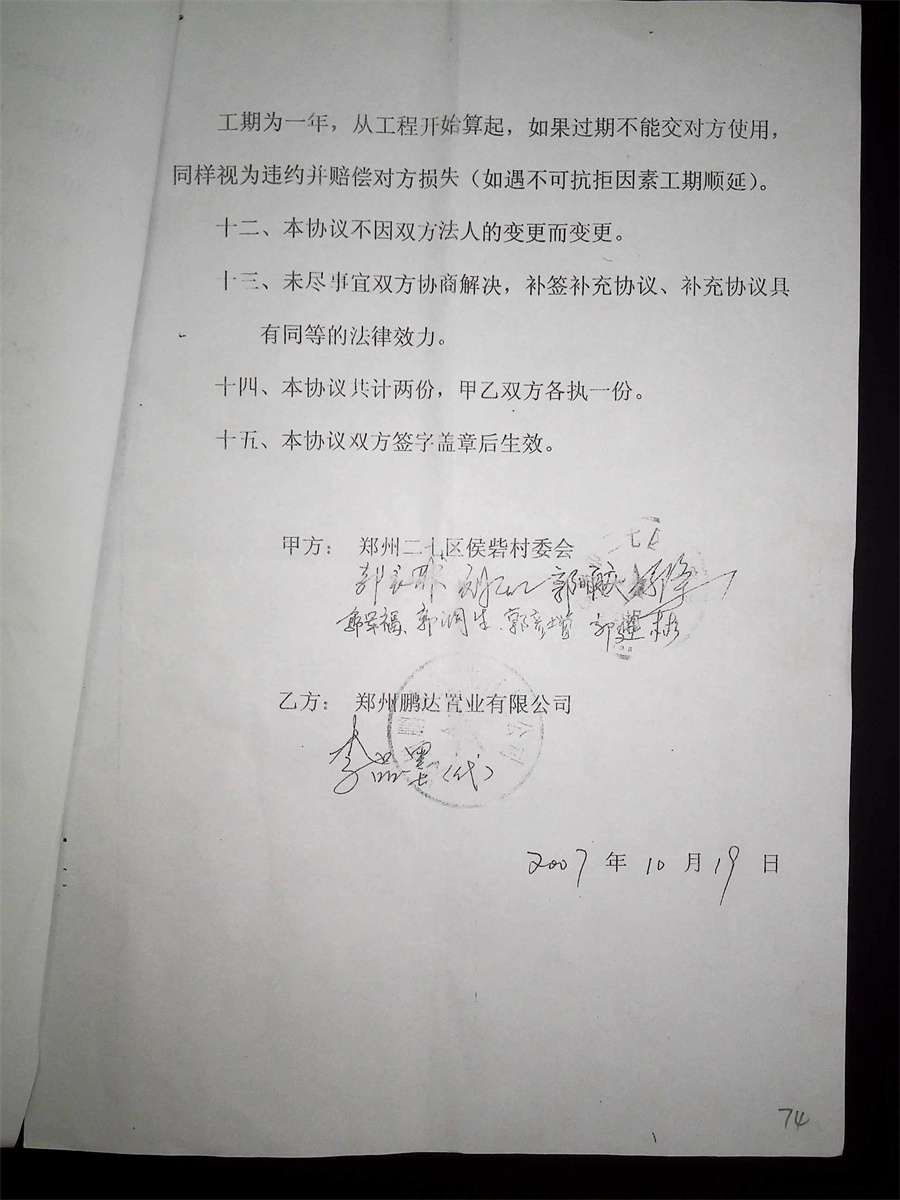 工期为一年，从工程开始算起，如果过期不能交对方使用，
同样视为违约并赔偿对方损失（如遇不可抗拒因素工期顺延）。
十二、本协议不因双方法人的变更而变更。
十三、未尽事宜双方协商解决，补签补充协议、补充协议具
有同等的法律效力。
十四、本协议共计两份，甲乙双方各执一份。
十五、本协议双方签字盖章后生效。
甲方： 郑州二七区侯砦村委会
郭润生
乙方： 郑州鹏达置业有限公司
李品墨（代）
2007 年 10 月 19 日
74